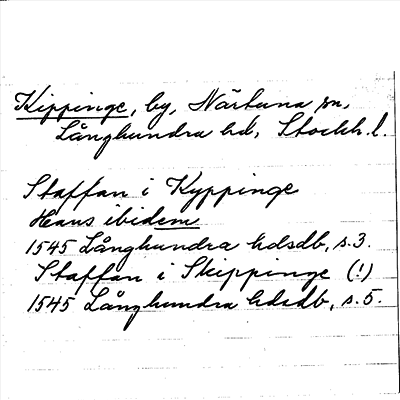 Kippinge, by, Närtuna sn,
Långhundra hd, Stockh. l.
Staffan i Kyppinge
Hans ibidem
1545 Långhundra hdsdb, s. 3.
Staffan i Skippinge (!)
1545 Långhundra hdsdb, s. 5.